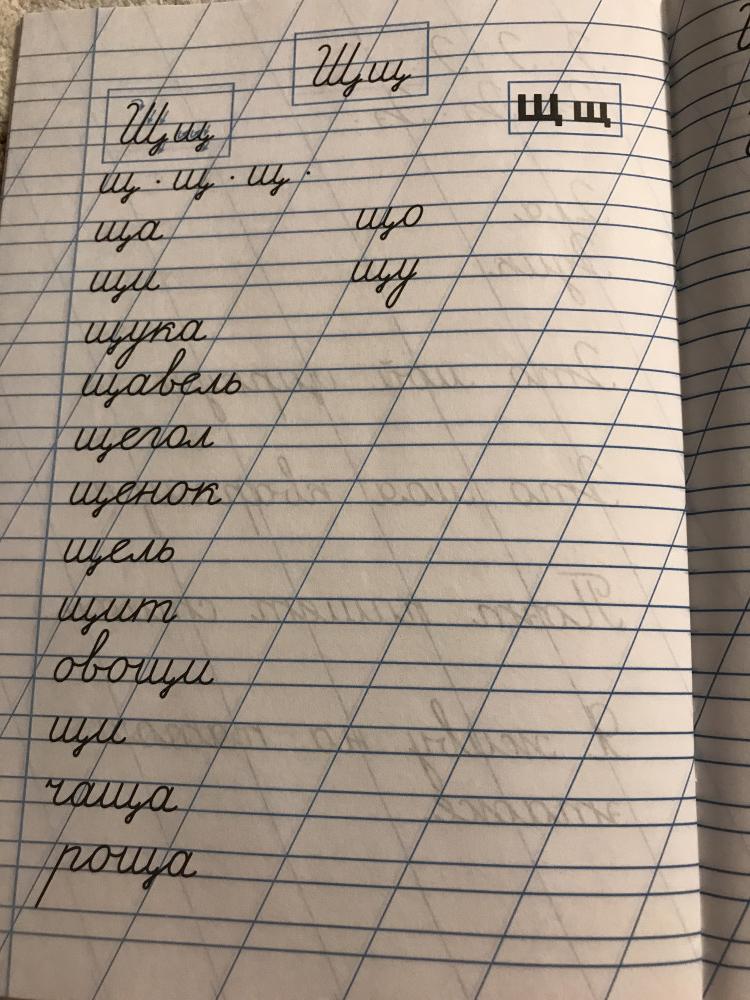 Щщ
Щщ
Щ щ
щ · щ · щ ·
ща що
щи щу
щука
щавель
щегол
щенок
щель
щит
овощи
щи
чаща
роща